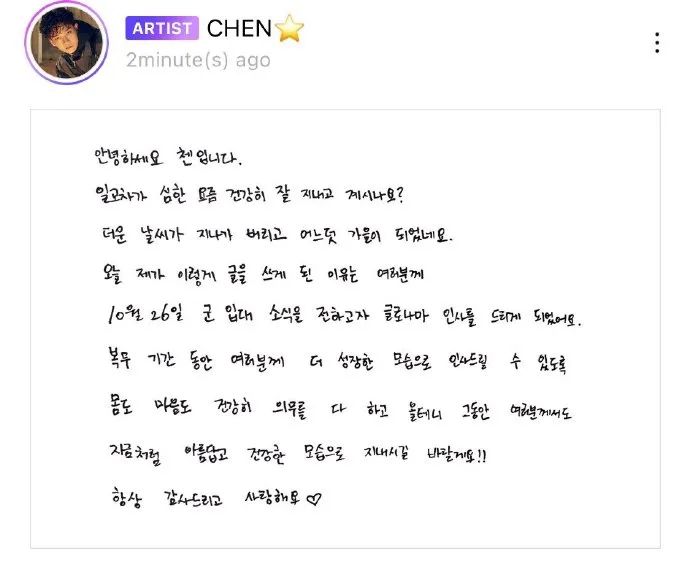 ARTIST CHEN⭐
2minute(s) ago
안녕하세요 첸입니다.
일교차가 심한 요즘 건강히 잘 지내고 계시나요?
더운 날씨가 지나가 버리고 어느덧 가을이 되었네요.
오늘 제가 이렇게 글을 쓰게 된 이유는 여러분께
10월 26일 군 입대 소식을 전하고자 글로나마 인사를 드리게 되었어요.
복무 기간 동안 여러분께 더 성장한 모습으로 인사드릴 수 있도록
몸도 마음도 건강히 의무를 다 하고 올테니 그동안 여러분께서도
지금처럼 아름답고 건강한 모습으로 지내시길 바랄게요!!
항상 감사드리고 사랑해요♡